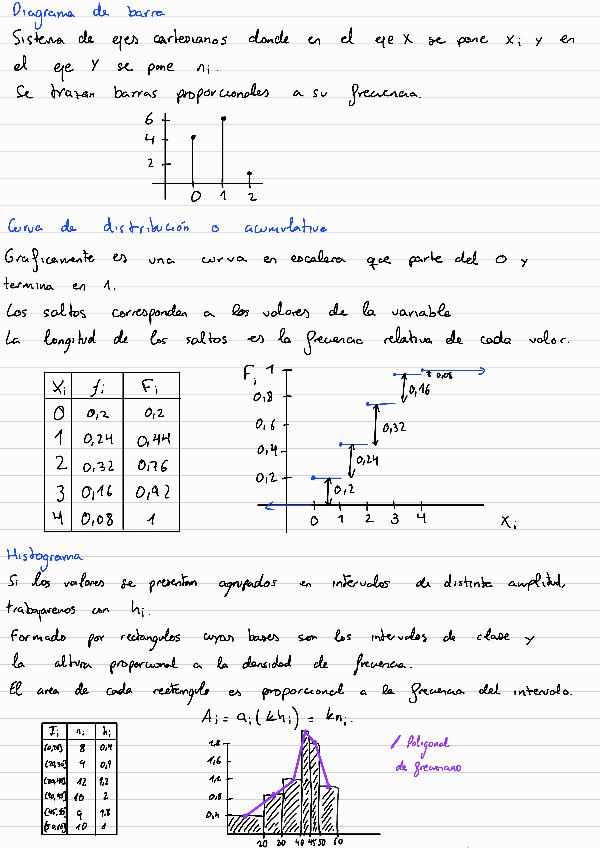 Diagrama de barra
Sistema de ejes cartesianos donde en el eje X se pone xi y en
el eje Y se pone ni.
Se trazan barras proporcionales a su frecuencia.
6
4
2
0 1 2
Curva de distribución o acumulativa
Graficamente es una curva en escalera que parte del 0 y
termina en 1.
Los saltos corresponden a los valores de la variable
La longitud de los saltos es la frecuencia relativa de cada valor.
Xi fi Fi
0 0,2 0,2
1 0,24 0,44
2 0,32 0,76
3 0,16 0,92
4 0,08 1
Fi 1
0,8
0,6
0,4
0,2
0,08
0,16
0,32
0,24
0,2
0 1 2 3 4
Xi
Histograma
Si los valores se presentan agrupados en intervalos de distinta amplitud,
trabajaremos con hi.
Formado por rectangulos cuyas bases son los intervalos de clase y
la altura proporcional a la densidad de frecuencia.
El area de cada rectangulo es proporcional a la frecuencia del intervalo.
Ai = ai (khi) = kni.
Ii ni hi
[0,20] 8 0,4
9 0,9
12 1,2
10 2
9 1,8
10 1
1,8
1,6
1,2
0,8
0,4
20 30 40 45 50 60
Poligonal
de frecuencias